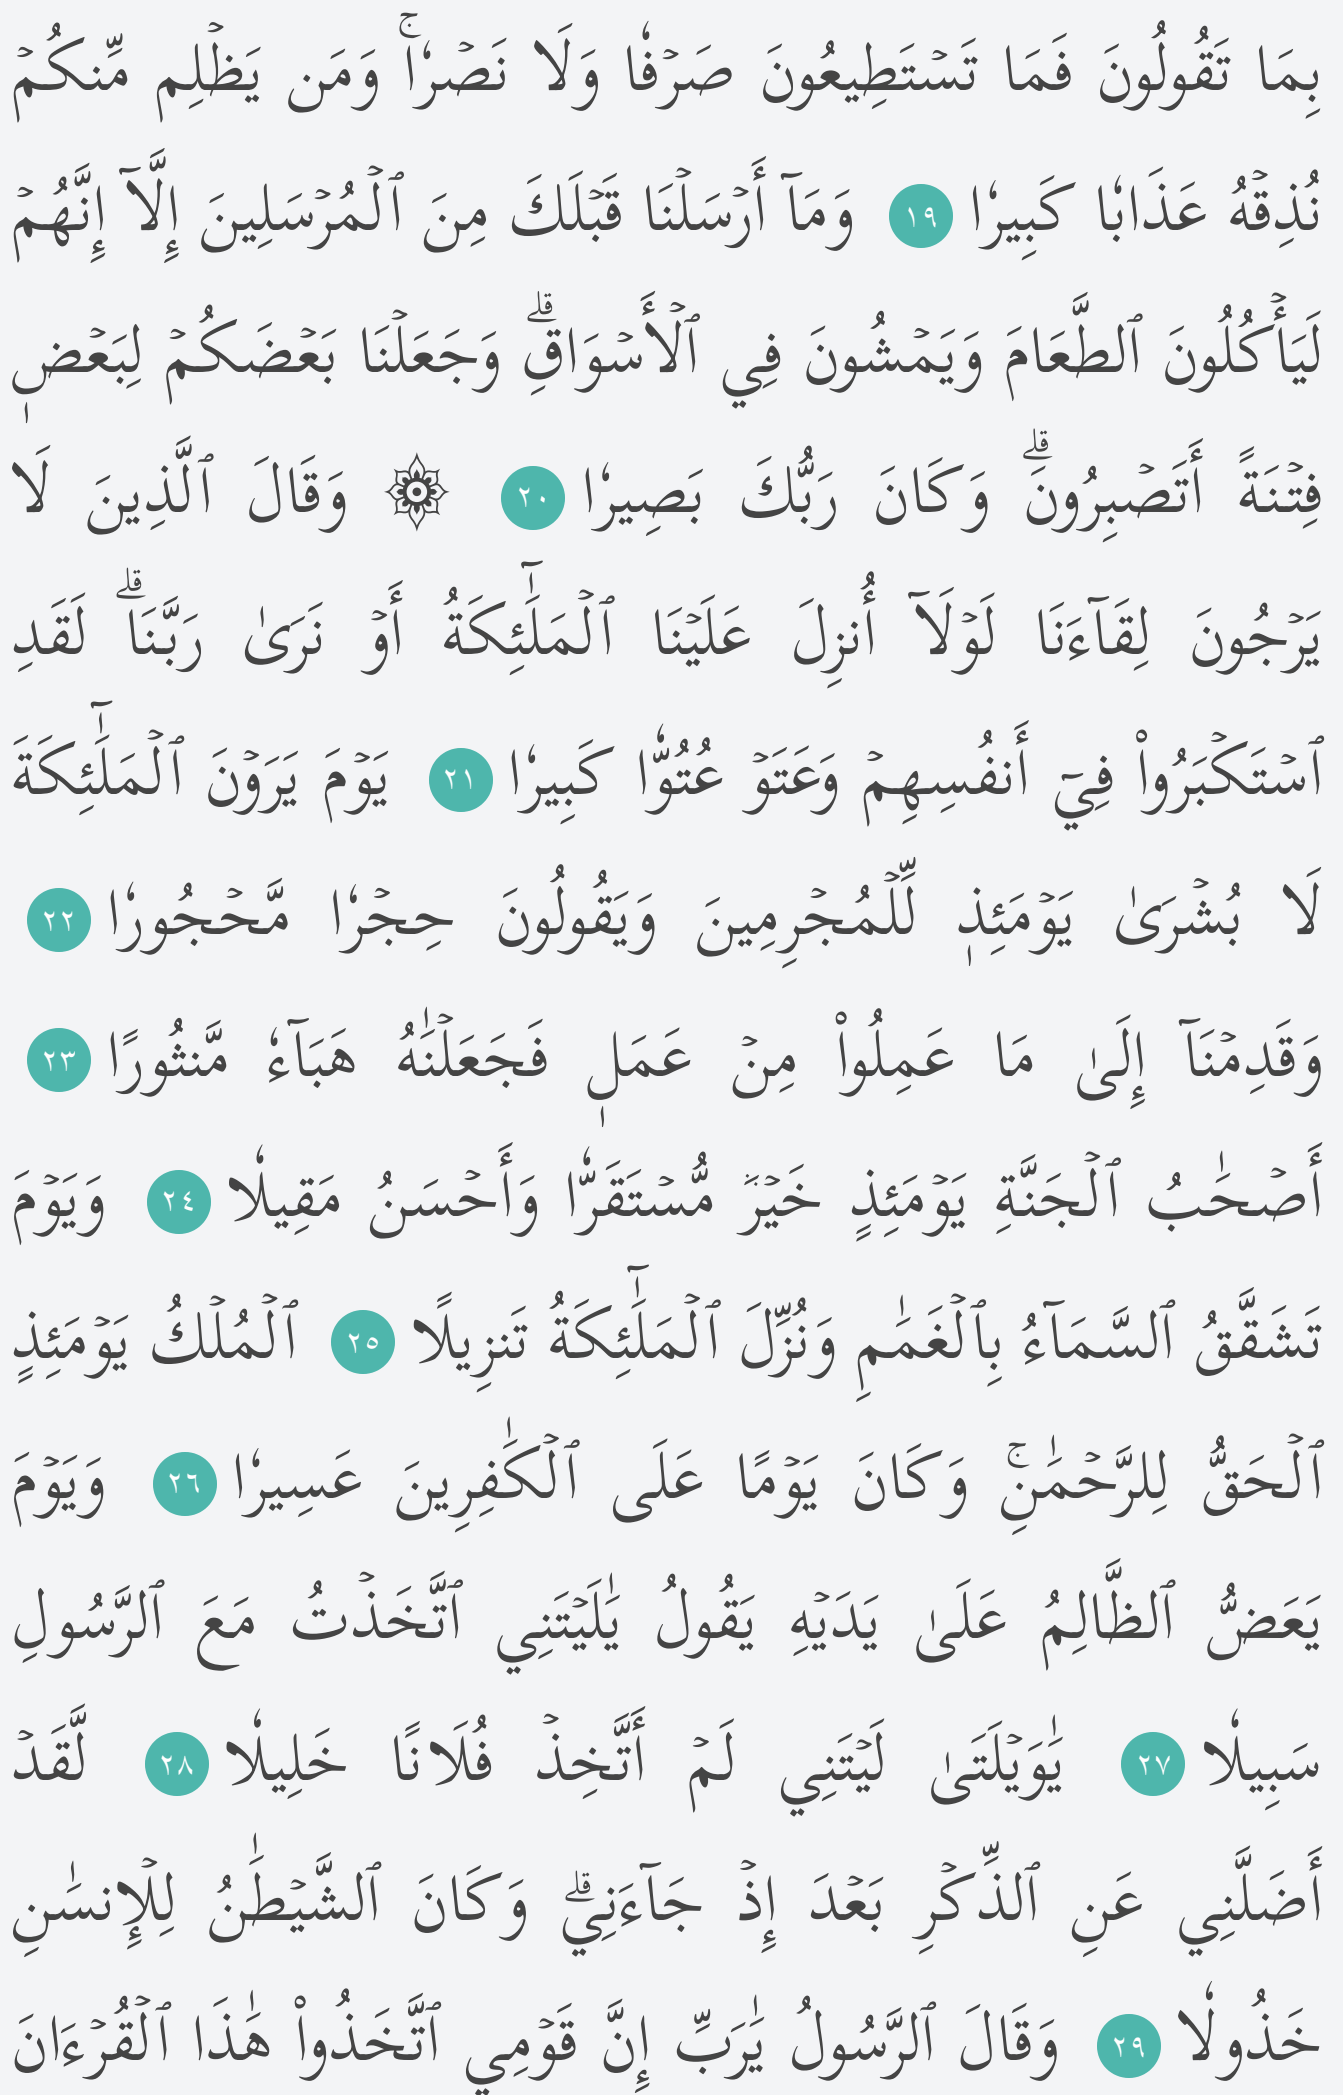 بِمَا تَقُولُونَ فَمَا تَسۡتَطِيعُونَ صَرۡفٗا وَلَا نَصۡرٗاۚ وَمَن يَظۡلِم مِّنكُمۡ
نُذِقۡهُ عَذَابٗا كَبِيرٗا ١٩ وَمَآ أَرۡسَلۡنَا قَبۡلَكَ مِنَ ٱلۡمُرۡسَلِينَ إِلَّآ إِنَّهُمۡ
لَيَأۡكُلُونَ ٱلطَّعَامَ وَيَمۡشُونَ فِي ٱلۡأَسۡوَاقِۗ وَجَعَلۡنَا بَعۡضَكُمۡ لِبَعۡضٖ
فِتۡنَةً أَتَصۡبِرُونَۗ وَكَانَ رَبُّكَ بَصِيرٗا ٢٠ ۞ وَقَالَ ٱلَّذِينَ لَا
يَرۡجُونَ لِقَآءَنَا لَوۡلَآ أُنزِلَ عَلَيۡنَا ٱلۡمَلَٰٓئِكَةُ أَوۡ نَرَىٰ رَبَّنَاۗ لَقَدِ
ٱسۡتَكۡبَرُواْ فِيٓ أَنفُسِهِمۡ وَعَتَوۡ عُتُوّٗا كَبِيرٗا ٢١ يَوۡمَ يَرَوۡنَ ٱلۡمَلَٰٓئِكَةَ
لَا بُشۡرَىٰ يَوۡمَئِذٖ لِّلۡمُجۡرِمِينَ وَيَقُولُونَ حِجۡرٗا مَّحۡجُورٗا ٢٢
وَقَدِمۡنَآ إِلَىٰ مَا عَمِلُواْ مِنۡ عَمَلٖ فَجَعَلۡنَٰهُ هَبَآءٗ مَّنثُورًا ٢٣
أَصۡحَٰبُ ٱلۡجَنَّةِ يَوۡمَئِذٍ خَيۡرٞ مُّسۡتَقَرّٗا وَأَحۡسَنُ مَقِيلٗا ٢٤ وَيَوۡمَ
تَشَقَّقُ ٱلسَّمَآءُ بِٱلۡغَمَٰمِ وَنُزِّلَ ٱلۡمَلَٰٓئِكَةُ تَنزِيلًا ٢٥ ٱلۡمُلۡكُ يَوۡمَئِذٍ
ٱلۡحَقُّ لِلرَّحۡمَٰنِۚ وَكَانَ يَوۡمًا عَلَى ٱلۡكَٰفِرِينَ عَسِيرٗا ٢٦ وَيَوۡمَ
يَعَضُّ ٱلظَّالِمُ عَلَىٰ يَدَيۡهِ يَقُولُ يَٰلَيۡتَنِي ٱتَّخَذۡتُ مَعَ ٱلرَّسُولِ
سَبِيلٗا ٢٧ يَٰوَيۡلَتَىٰ لَيۡتَنِي لَمۡ أَتَّخِذۡ فُلَانًا خَلِيلٗا ٢٨ لَّقَدۡ
أَضَلَّنِي عَنِ ٱلذِّكۡرِ بَعۡدَ إِذۡ جَآءَنِيۗ وَكَانَ ٱلشَّيۡطَٰنُ لِلۡإِنسَٰنِ
خَذُولٗا ٢٩ وَقَالَ ٱلرَّسُولُ يَٰرَبِّ إِنَّ قَوۡمِي ٱتَّخَذُواْ هَٰذَا ٱلۡقُرۡءَانَ